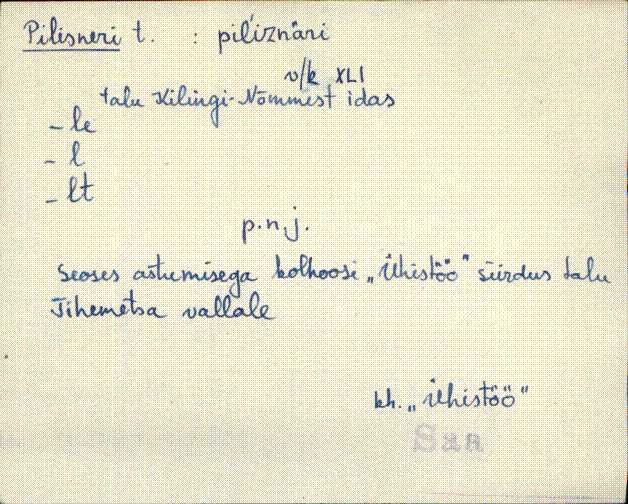 Pilisneri t. : pil'iznäri
v/k XLI
talu Kilingi-Nõmmest idas
- le
- l
- lt
p.n.j.
Seoses astumisega kolhoosi „Ühistöö" siirdus talu
Tihemetsa vallale
kh. „Ühistöö"
Saa